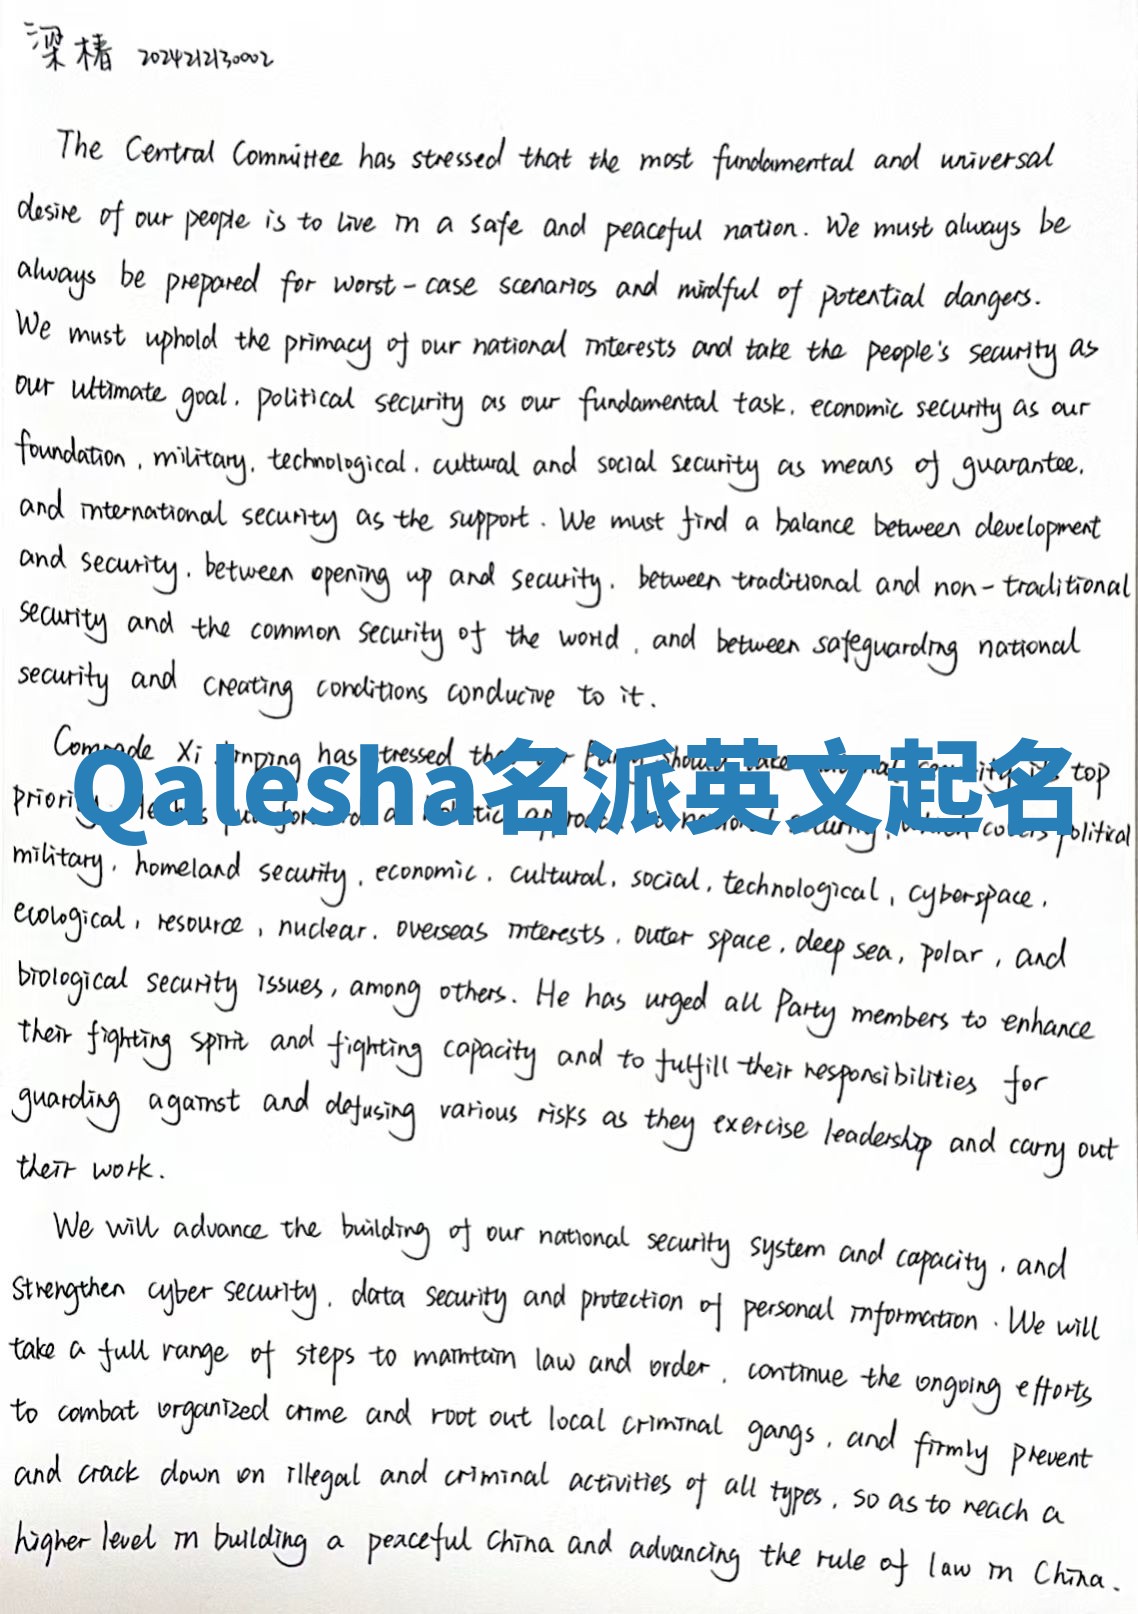 梁椿 2024212130002
The Central Committee has stressed that the most fundamental and universal
desire of our people is to live in a safe and peaceful nation. We must always be
always be prepared for worst-case scenarios and mindful of potential dangers.
We must uphold the primacy of our national interests and take the people's security as
our ultimate goal, political security as our fundamental task, economic security as our
foundation, military, technological, cultural and social security as means of guarantee,
and international security as the support. We must find a balance between development
and security, between opening up and security, between traditional and non-traditional
security and the common security of the world, and between safeguarding national
security and creating conditions conducive to it.
Comrade Xi Jinping has stressed top
Qalesha名派英文起名
political
military, homeland security, economic, cultural, social, technological, cyberspace,
ecological, resource, nuclear, overseas interests, outer space, deep sea, polar, and
biological security issues, among others. He has urged all Party members to enhance
their fighting spirit and fighting capacity and to fulfill their responsibilities for
guarding against and defusing various risks as they exercise leadership and carry out
their work.
We will advance the building of our national security system and capacity, and
strengthen cyber security, data security and protection of personal information. We will
take a full range of steps to maintain law and order, continue the ongoing efforts
to combat organized crime and root out local criminal gangs, and firmly prevent
and crack down on illegal and criminal activities of all types, so as to reach a
higher level in building a peaceful China and advancing the rule of law in China.